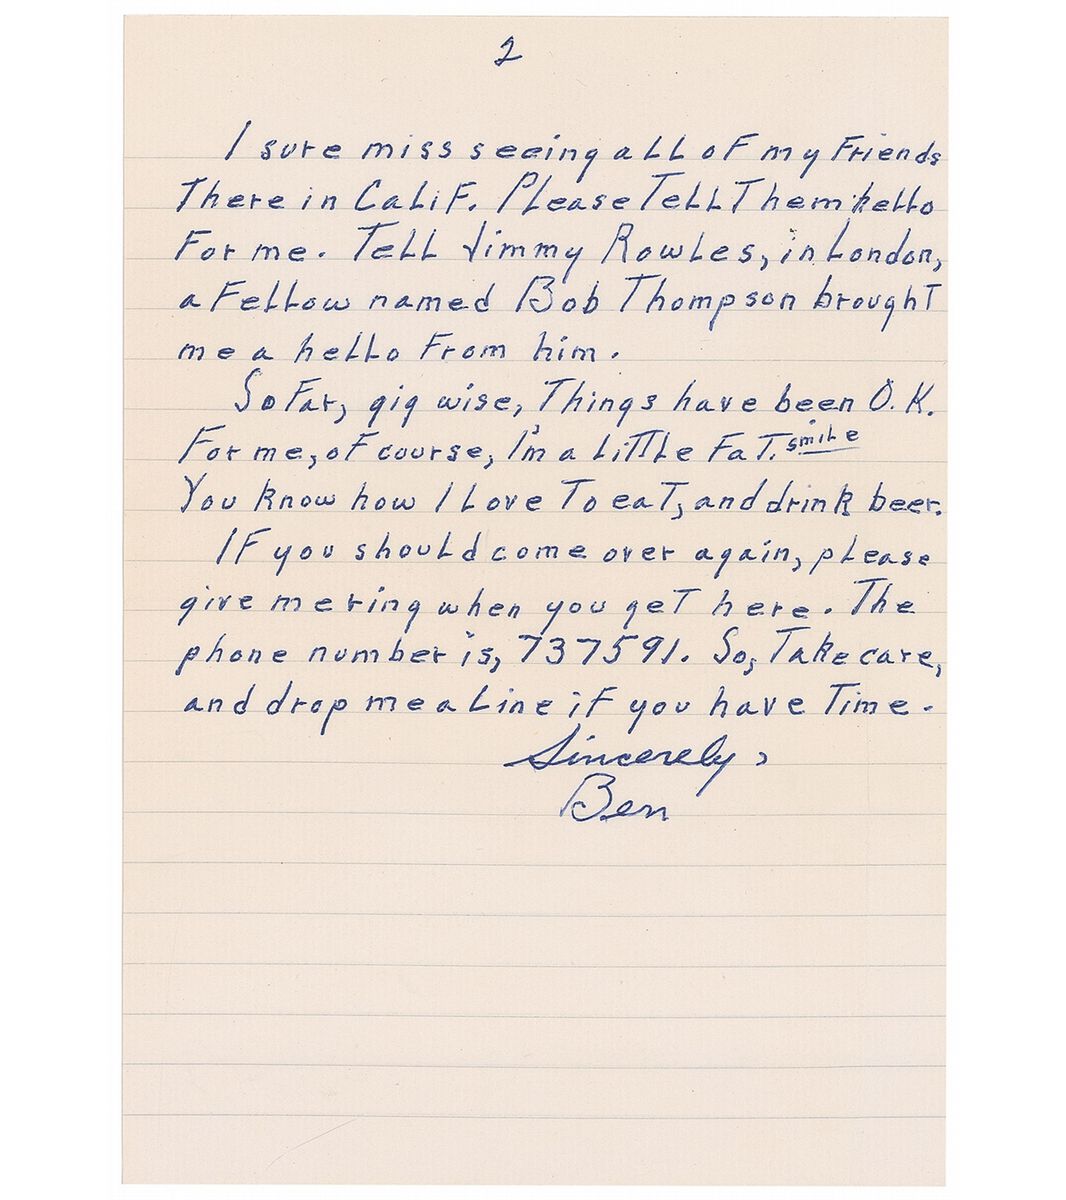 2
I sure miss seeing all of my Friends
There in Calif. Please Tell Them hello
For me. Tell Jimmy Rowles, in London,
a Fellow named Bob Thompson brought
me a hello From him.
So Far, gig wise, Things have been O.K.
For me, of course, I'm a Little Fat. smile
You know how I Love To eat, and drink beer.
If you should come over again, please
give me ring when you get here. The
phone number is, 737591. So, Take care,
and drop me a Line if you have Time.
Sincerely,
Ben